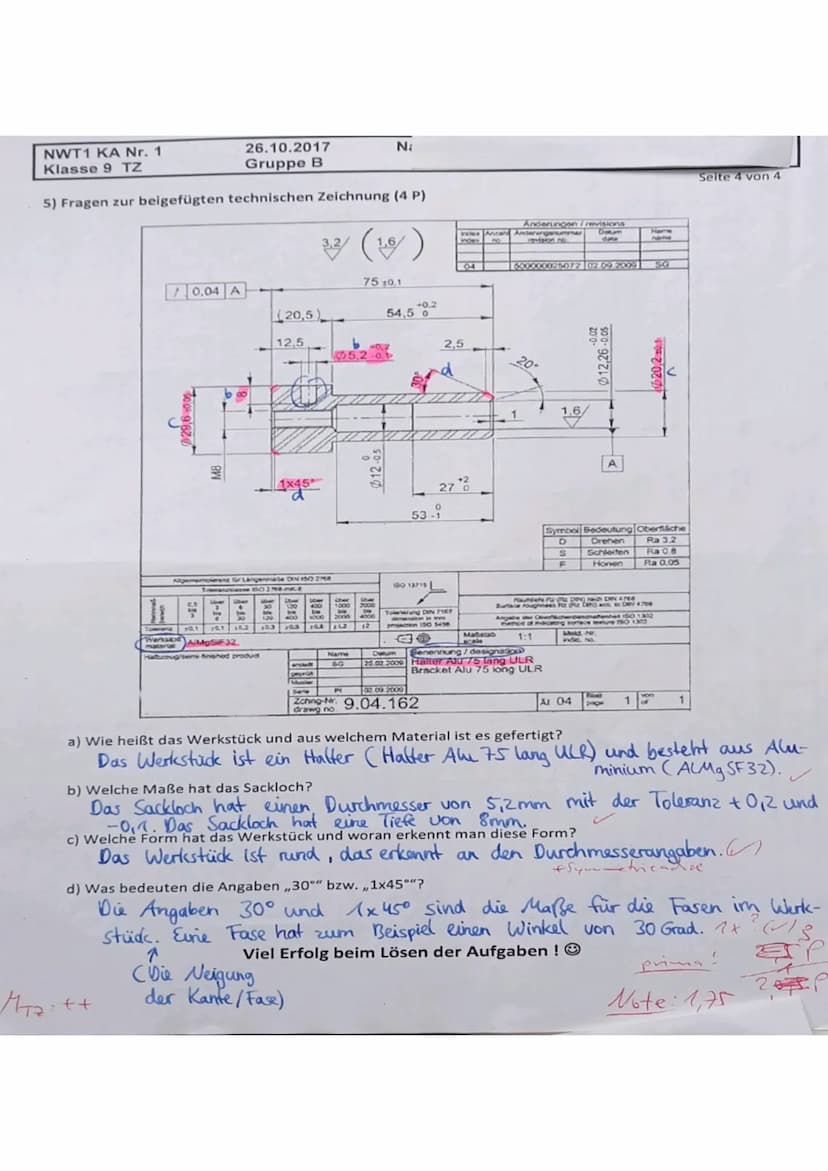 NWT1 KA Nr. 1 26.10.2017
Klasse 9 TZ Gruppe B
Seite 4 von 4
5) Fragen zur beigefügten technischen Zeichnung (4 P)
Änderungen / revisions
Index Anzahl Änderungsnummer Datum Name
index no. revision no. date name
04 500000025072 02.09.2009 SG
3,2 (1,6)
75 ±0,1
/ 0,04 A
(20,5) 54,5 +0,2 0
12,5 b 2,5
Ø5,2 +0,2 -0,1
d 20°
30°
b 8
c Ø29,6
Ø12,26 -0,02 -0,05
Ø20,2 ±0,1 c
1
1,6
A
M8
1x45°
d
Ø12 0 -0,5
27 +2 0
53 0 -1
Symbol Bedeutung Oberfläche
D Drehen Ra 3.2
S Schleifen Ra 0.8
F Honen Ra 0,05
Allgemeintoleranz für Längenmaße DIN ISO 2768
Toleranzklasse ISO 2768
ISO 13715
Tolerierung DIN 7167
dimension in mm
projection ISO 5456
Maßstab
scale
1:1
Werkstoff
material
AlMgSiF32
Halbzeug/semi-finished product
Name Datum
erstellt SG 25.02.2009
geprüft
Muster
Serie PI 02.09.2009
Benennung / designation
Halter Alu 75 lang ULR
Bracket Alu 75 long ULR
Zchng-Nr.
drawg no.
9.04.162
Blatt
page
1 von
of
1
a) Wie heißt das Werkstück und aus welchem Material ist es gefertigt?
Das Werkstück ist ein Halter (Halter Alu 75 lang ULR) und besteht aus Alu-
minium (ALMgSF32).
b) Welche Maße hat das Sackloch?
Das Sackloch hat einen Durchmesser von 5,2mm mit der Toleranz +0,2 und
-0,1. Das Sackloch hat eine Tiefe von 8mm.
c) Welche Form hat das Werkstück und woran erkennt man diese Form?
Das Werkstück ist rund, das erkennt an den Durchmesserangaben.
d) Was bedeuten die Angaben „30°“ bzw. „1x45°“?
Die Angaben 30° und 1x45° sind die Maße für die Fasen im Werk-
stück. Eine Fase hat zum Beispiel einen Winkel von 30 Grad. 1x ?
Viel Erfolg beim Lösen der Aufgaben ! ☺
(Die Neigung
der Kante/Fase)
prima!
Note: 1,75